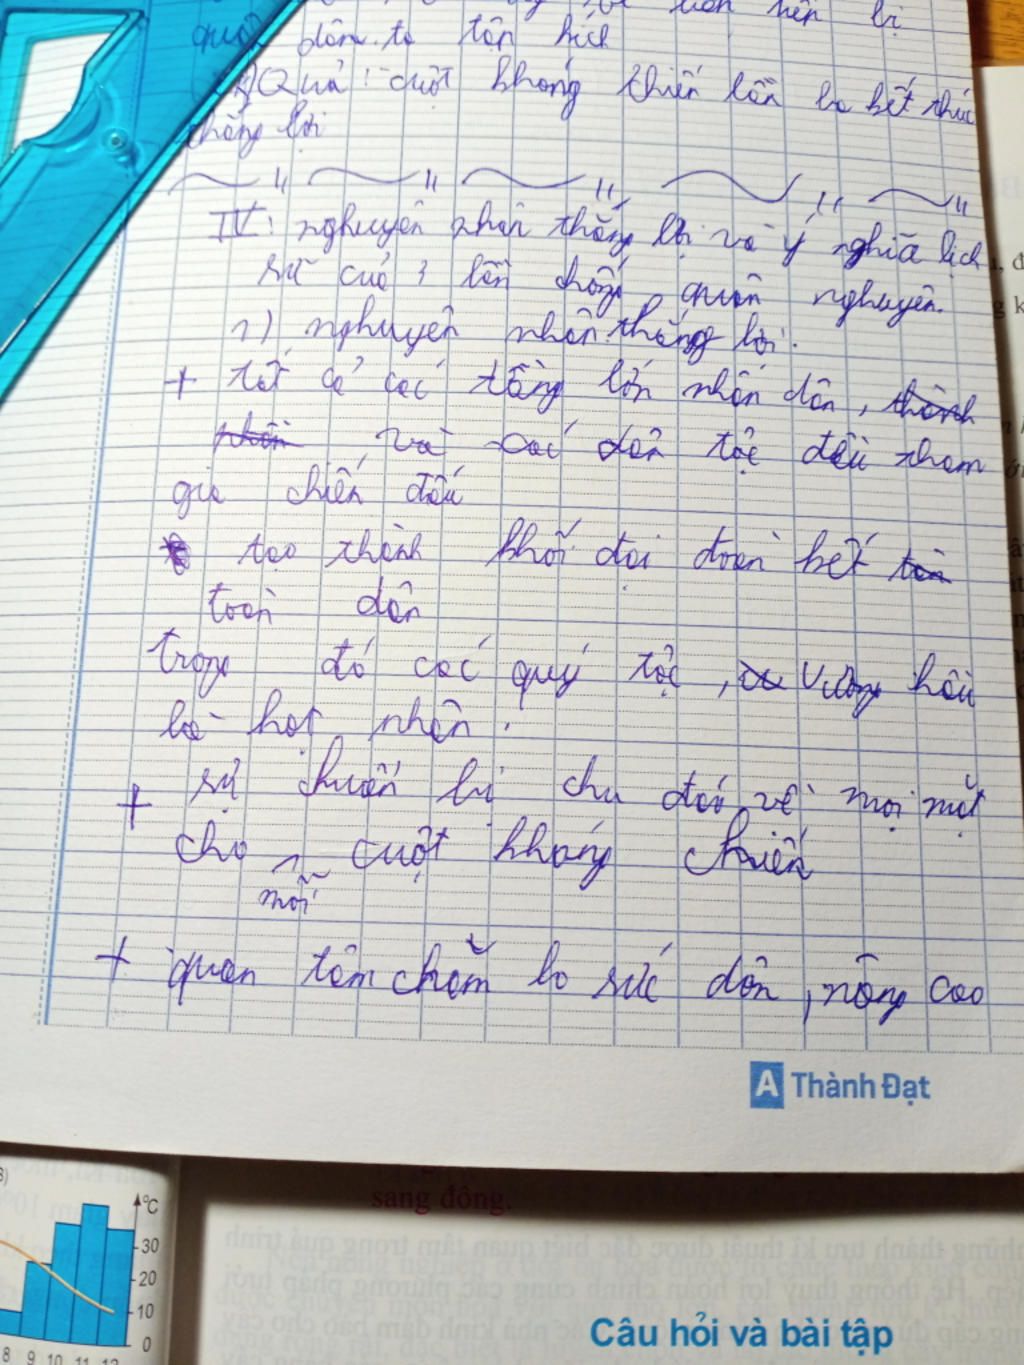 quân dân ta tận kích
Quả: cuột kháng thiến lần ba kết thúc
thắng lợi
IV: nghuyên nhân thắng lợi và ý nghĩa lịch
sử cuả 3 lần chống quân nghuyên.
1) nghuyên nhân thắng lợi.
+ tất cả các tầng lớn nhân dân, thành
phần và các dân tộc đều tham
gia chiến đấu
tạo thành khối đại đoàn kết toàn
toàn dân
trong đó các quý tộc, vương hầu
là hạt nhân.
+ sự chuẩn bị chu đáo về mọi mặt
cho mỗi cuột kháng chiến
+ quan tâm chăm lo sức dân, nâng cao
A Thành Đạt
°C
30
20
10
0
8 9 10 11 12
sang đông.
Câu hỏi và bài tập